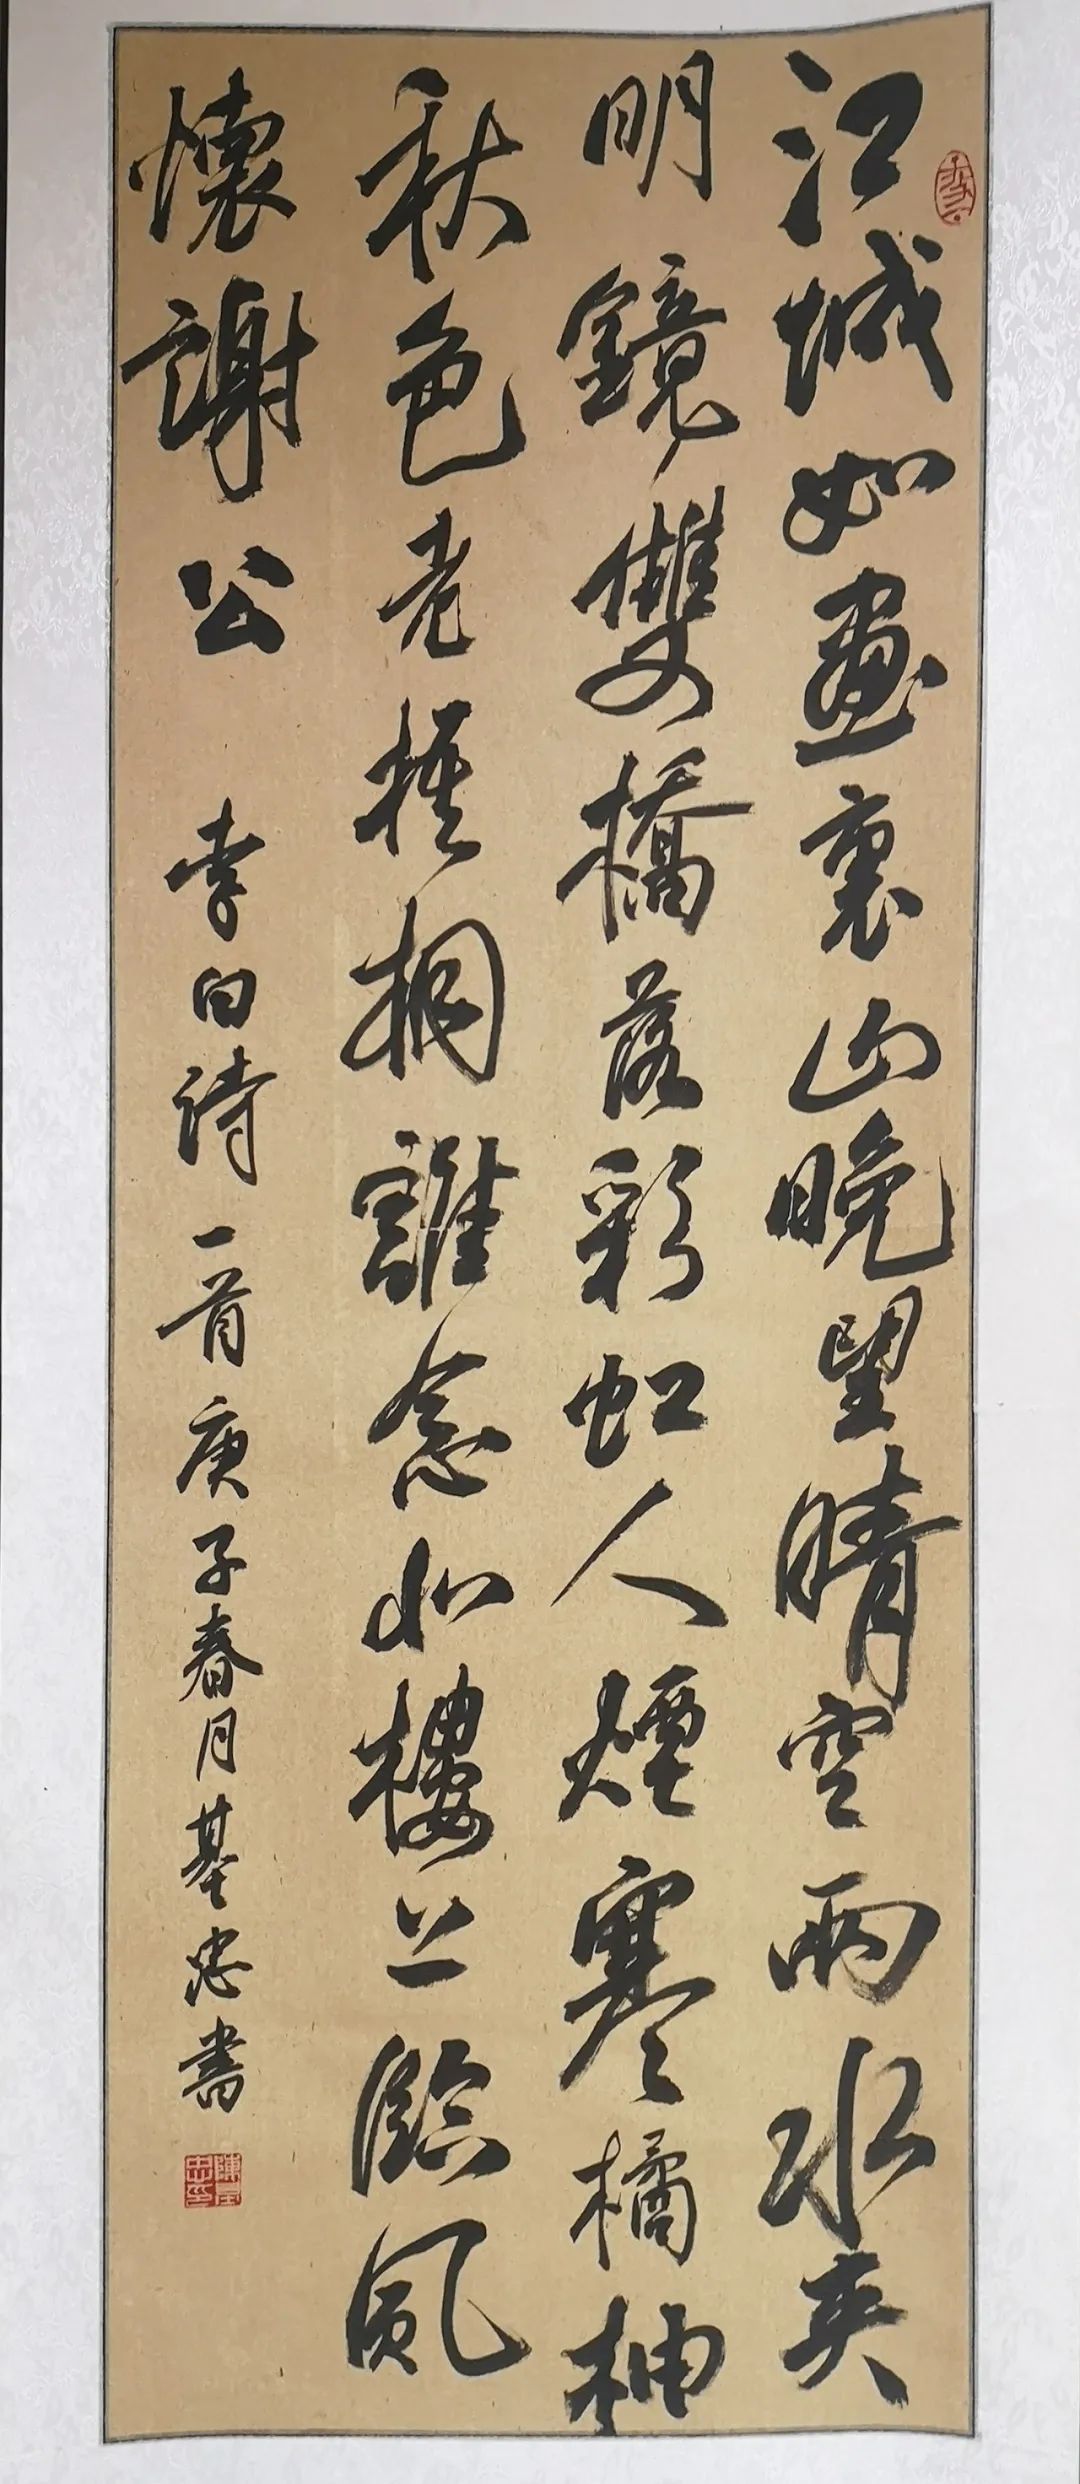 江城如畫裏山晚望晴空兩水夾
明鏡雙橋落彩虹人煙寒橘柚
秋色老梧桐誰念北樓上臨風
懷謝公 李白詩一首庚子春月基忠書
陳基忠印